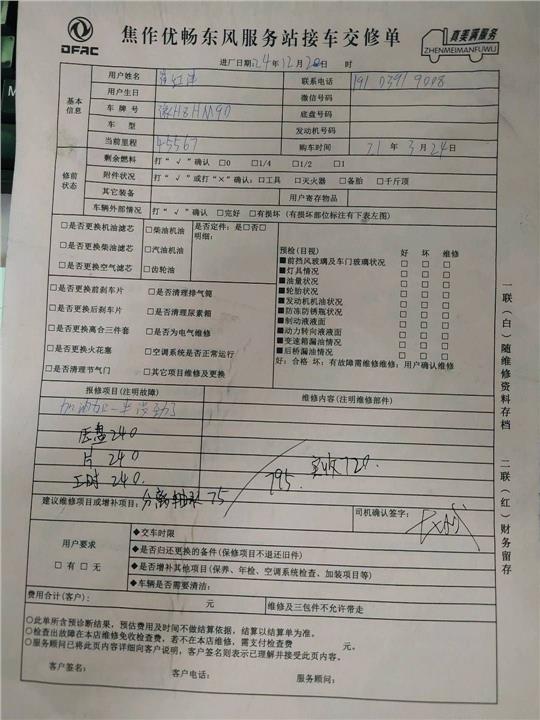 DFAC
焦作优畅东风服务站接车交修单
真美满服务
ZHENMEIMANFUWU
进厂日期:24年12月2 日 时
基本信息
用户姓名
联系电话 191 0391 9088
用户生日 微信号码
车牌号 豫H8HM90 底盘号码
车型 发动机号码
当前里程 45567 购车时间 21年3月24日
修前状态
剩余燃料 打“√”确认 □0 □1/4 □1/2 □1
附件状况 打“√”或打“×”确认:□工具 □灭火器 □备胎 □千斤顶
其它装备 用户寄存物品
车辆外部情况 打“√”确认 □完好 □有损坏(有损坏部位标注有下表左图)
□是否更换机油滤芯 □柴油机油 是否定件:是□否□
明细:
□是否更换柴油滤芯 □汽油机油
□是否更换空气滤芯 □齿轮油
□是否更换前刹车片 □是否清理排气筒
□是否更换后刹车片 □是否清理尿素箱
□是否更换离合三件套 □是否为电气维修
□是否更换火花塞 □空调系统是否正常运行
□是否清理节气门 □其它项目维修及更换
预检(目视) 好 坏 维修
■前挡风玻璃及车门玻璃状况 □ □ □
■灯具情况 □ □ □
■油量状况 □ □ □
■轮胎状况 □ □ □
■发动机机油状况 □ □ □
■防冻防锈瓶状况 □ □ □
■制动液液面 □ □ □
■动力转向液液面 □ □ □
■变速箱漏油情况 □ □ □
■后桥漏油情况 □ □ □
好:合格 坏:有故障需维修维修:用户确认维修
报修项目(注明故障) 维修内容(注明维修部件)
压盘240
片240
工时240
795 实收720
建议维修项目或增补项目:分离轴承75
司机确认签字:
用户要求
□有□无
◆交车时限
◆是否归还更换的备件(保修项目不退还旧件)
◆是否增补其他项目(保养、年检、空调系统检查、加装项目等)
◆车辆是否需要清洁:
费用合计(客户): 元 维修及三包件不允许带走
○此单所含预诊断结果,预估费用及时间不做结算依据,结算以结算单为准。
○检查出故障在本店维修免收检查费,若不在本店维修,需支付检查费 元。
○服务顾问已将此页内容详细向客户说明,客户签名则表示已理解并接受此页内容。
客户签名: 客户电话: 服务顾问:
一联(白)随维修资料存档 二联(红)财务留存